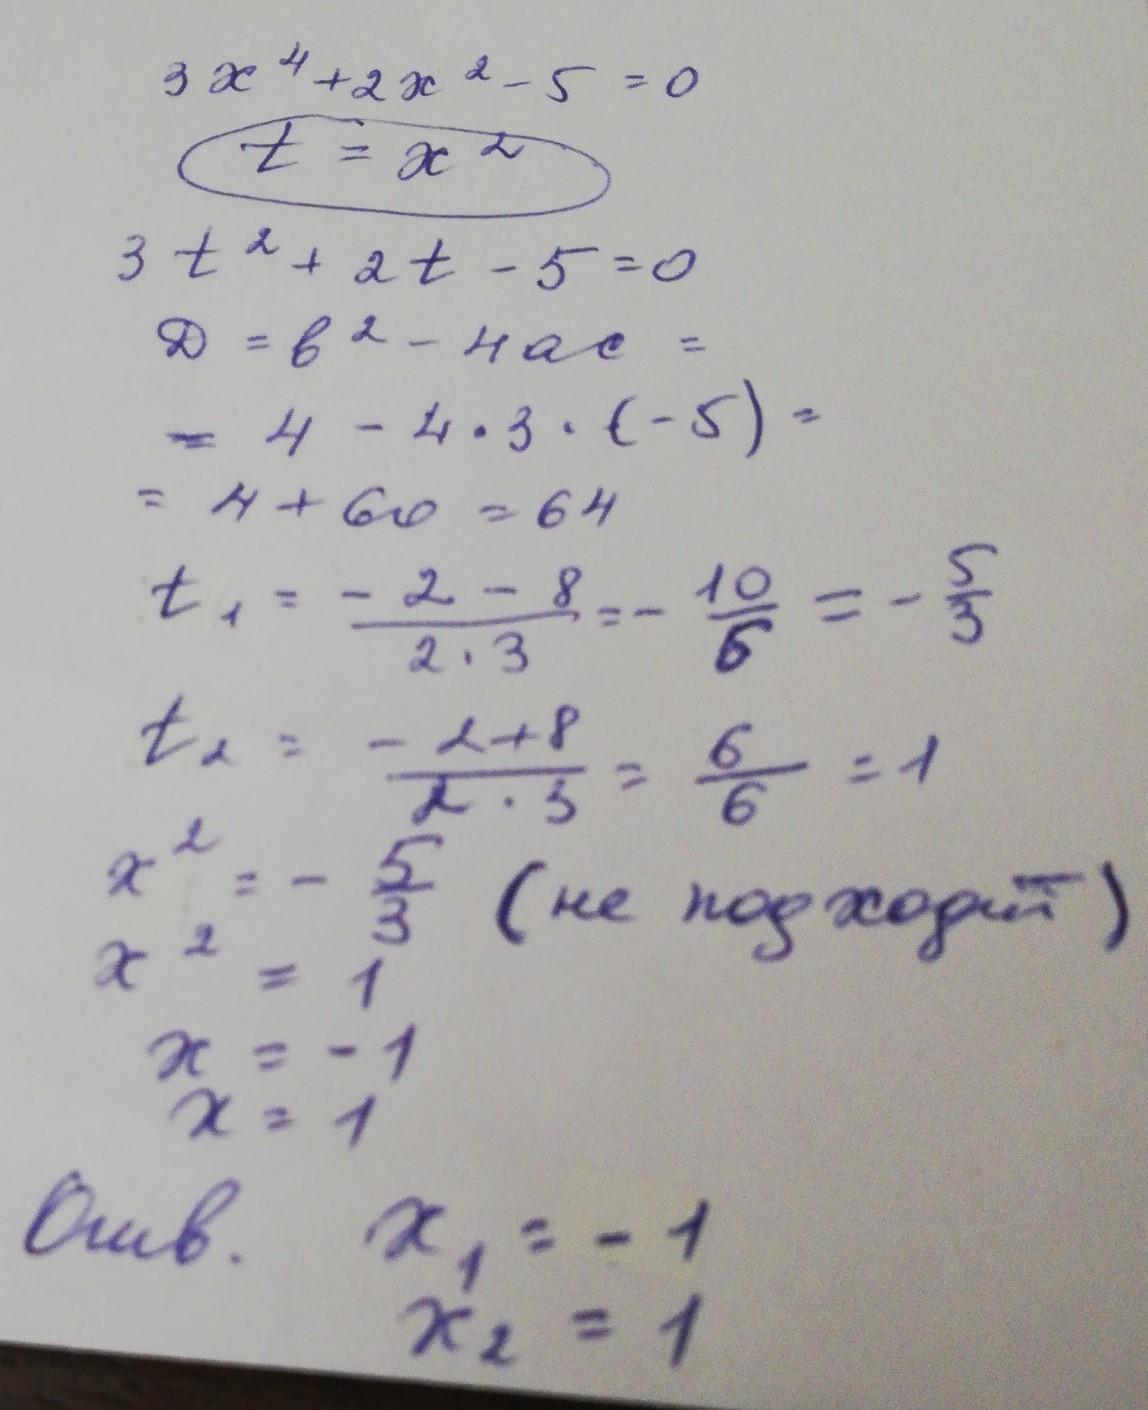 3x⁴+2x²-5=0
t=x²
3t²+2t-5=0
D=b²-4ac=
=4-4·3·(-5)=
=4+60=64
t₁=(-2-8)/(2·3)=-10/6=-5/3
t₂=(-2+8)/(2·3)=6/6=1
x²=-5/3 (не подходит)
x²=1
x=-1
x=1
Отв. x₁=-1
x₂=1